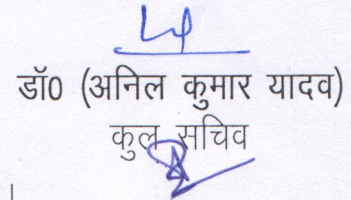 डॉ0 (अनिल कुमार यादव)
कुल सचिव